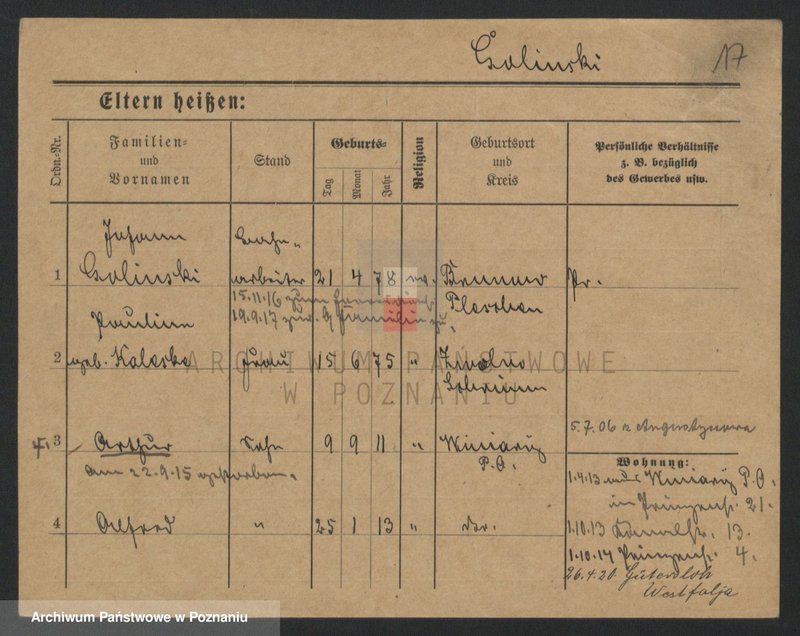 Golinski
17
Eltern heißen:
Ordn.-Nr.
Familien-
und
Vornamen
Stand
Geburts-
Tag
Monat
Jahr
Religion
Geburtsort
und
Kreis
Persönliche Verhältnisse
z. B. bezüglich
des Gewerbes usw.
Johann
Golinski
Bahn-
arbeiter
1
21 4 78 ev.
Pr.
15.11.16 zum
Pleschen
19.9.17 zur Familie zu.
Pauline
2
geb.
Frau
15 6 75 "
5.7.06
3
Arthur
Sohn
9 9 11 "
Winiary
P.O.
am 22.9.15 gestorben.
Wohnung:
1.4.13 Winiary P.O.
Prinzenstr. 21.
4
Alfred
"
25 1 13 "
do.
1.10.13 Kanalstr. 13.
1.10.14 Prinzenstr. 4.
26.4.20 Gütersloh
Westfalja
ARCHIWUM PAŃSTWOWE
W POZNANIU
Archiwum Państwowe w Poznaniu